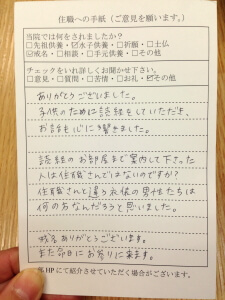 住職への手紙(ご意見を願います。)
当院では何をされましたか?
□先祖供養・☑水子供養・□祈願・□土仏
☑戒名・□相談・□手元供養・□その他
チェックをいれ詳しくお聞かせ下さい。
□意見・□質問・□苦情・□お礼・☑その他
ありがとうございました。
子供のために読経をしていただき、
お話も心に響きました。
読経のお部屋まで案内して下さった
人は住職さんではないのですか?
住職さんと違う衣装の男性たちは
何のお方なんだろうと思いました。
戒名ありがとうございます。
また命日にお参りに来ます。
HPにて紹介させていただく場合がございます。